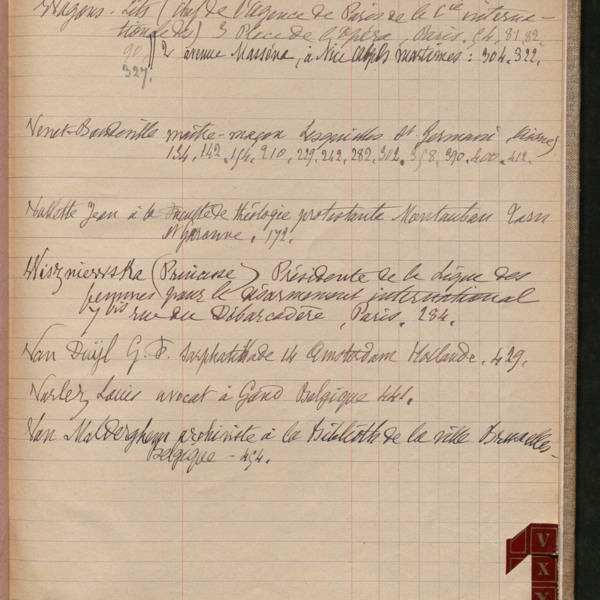 Wagons-Lits (chef de l'agence de Paris de la Cie interna-
tionale des) 3 Place de l'opéra, Paris, 54, 81, 82
90, 2 avenue Masséna, à Nice Alpes maritimes : 304, 322,
327.
Venet-Bouteville maître-maçon Lesquielles St Germain (Aisne)
134, 142, 154, 210, 229, 242, 282, 302, 358, 370, 400, 412.
Vallette Jean à la Faculté de théologie protestante Montauban Tarn
& Garonne, 172.
Wisznierwska (Princesse) Présidente de la Ligue des
femmes pour le désarmement international
7 bis rue du Débarcadère, Paris, 284.
Van Duijl G. F. Sarphatikade 14 Amsterdam Hollande, 429.
Varlez Louis avocat à Gand Belgique 441.
Van Malderghem archiviste à la Biblioth de la ville Bruxelles-
Belgique - 454.
V
X
Y